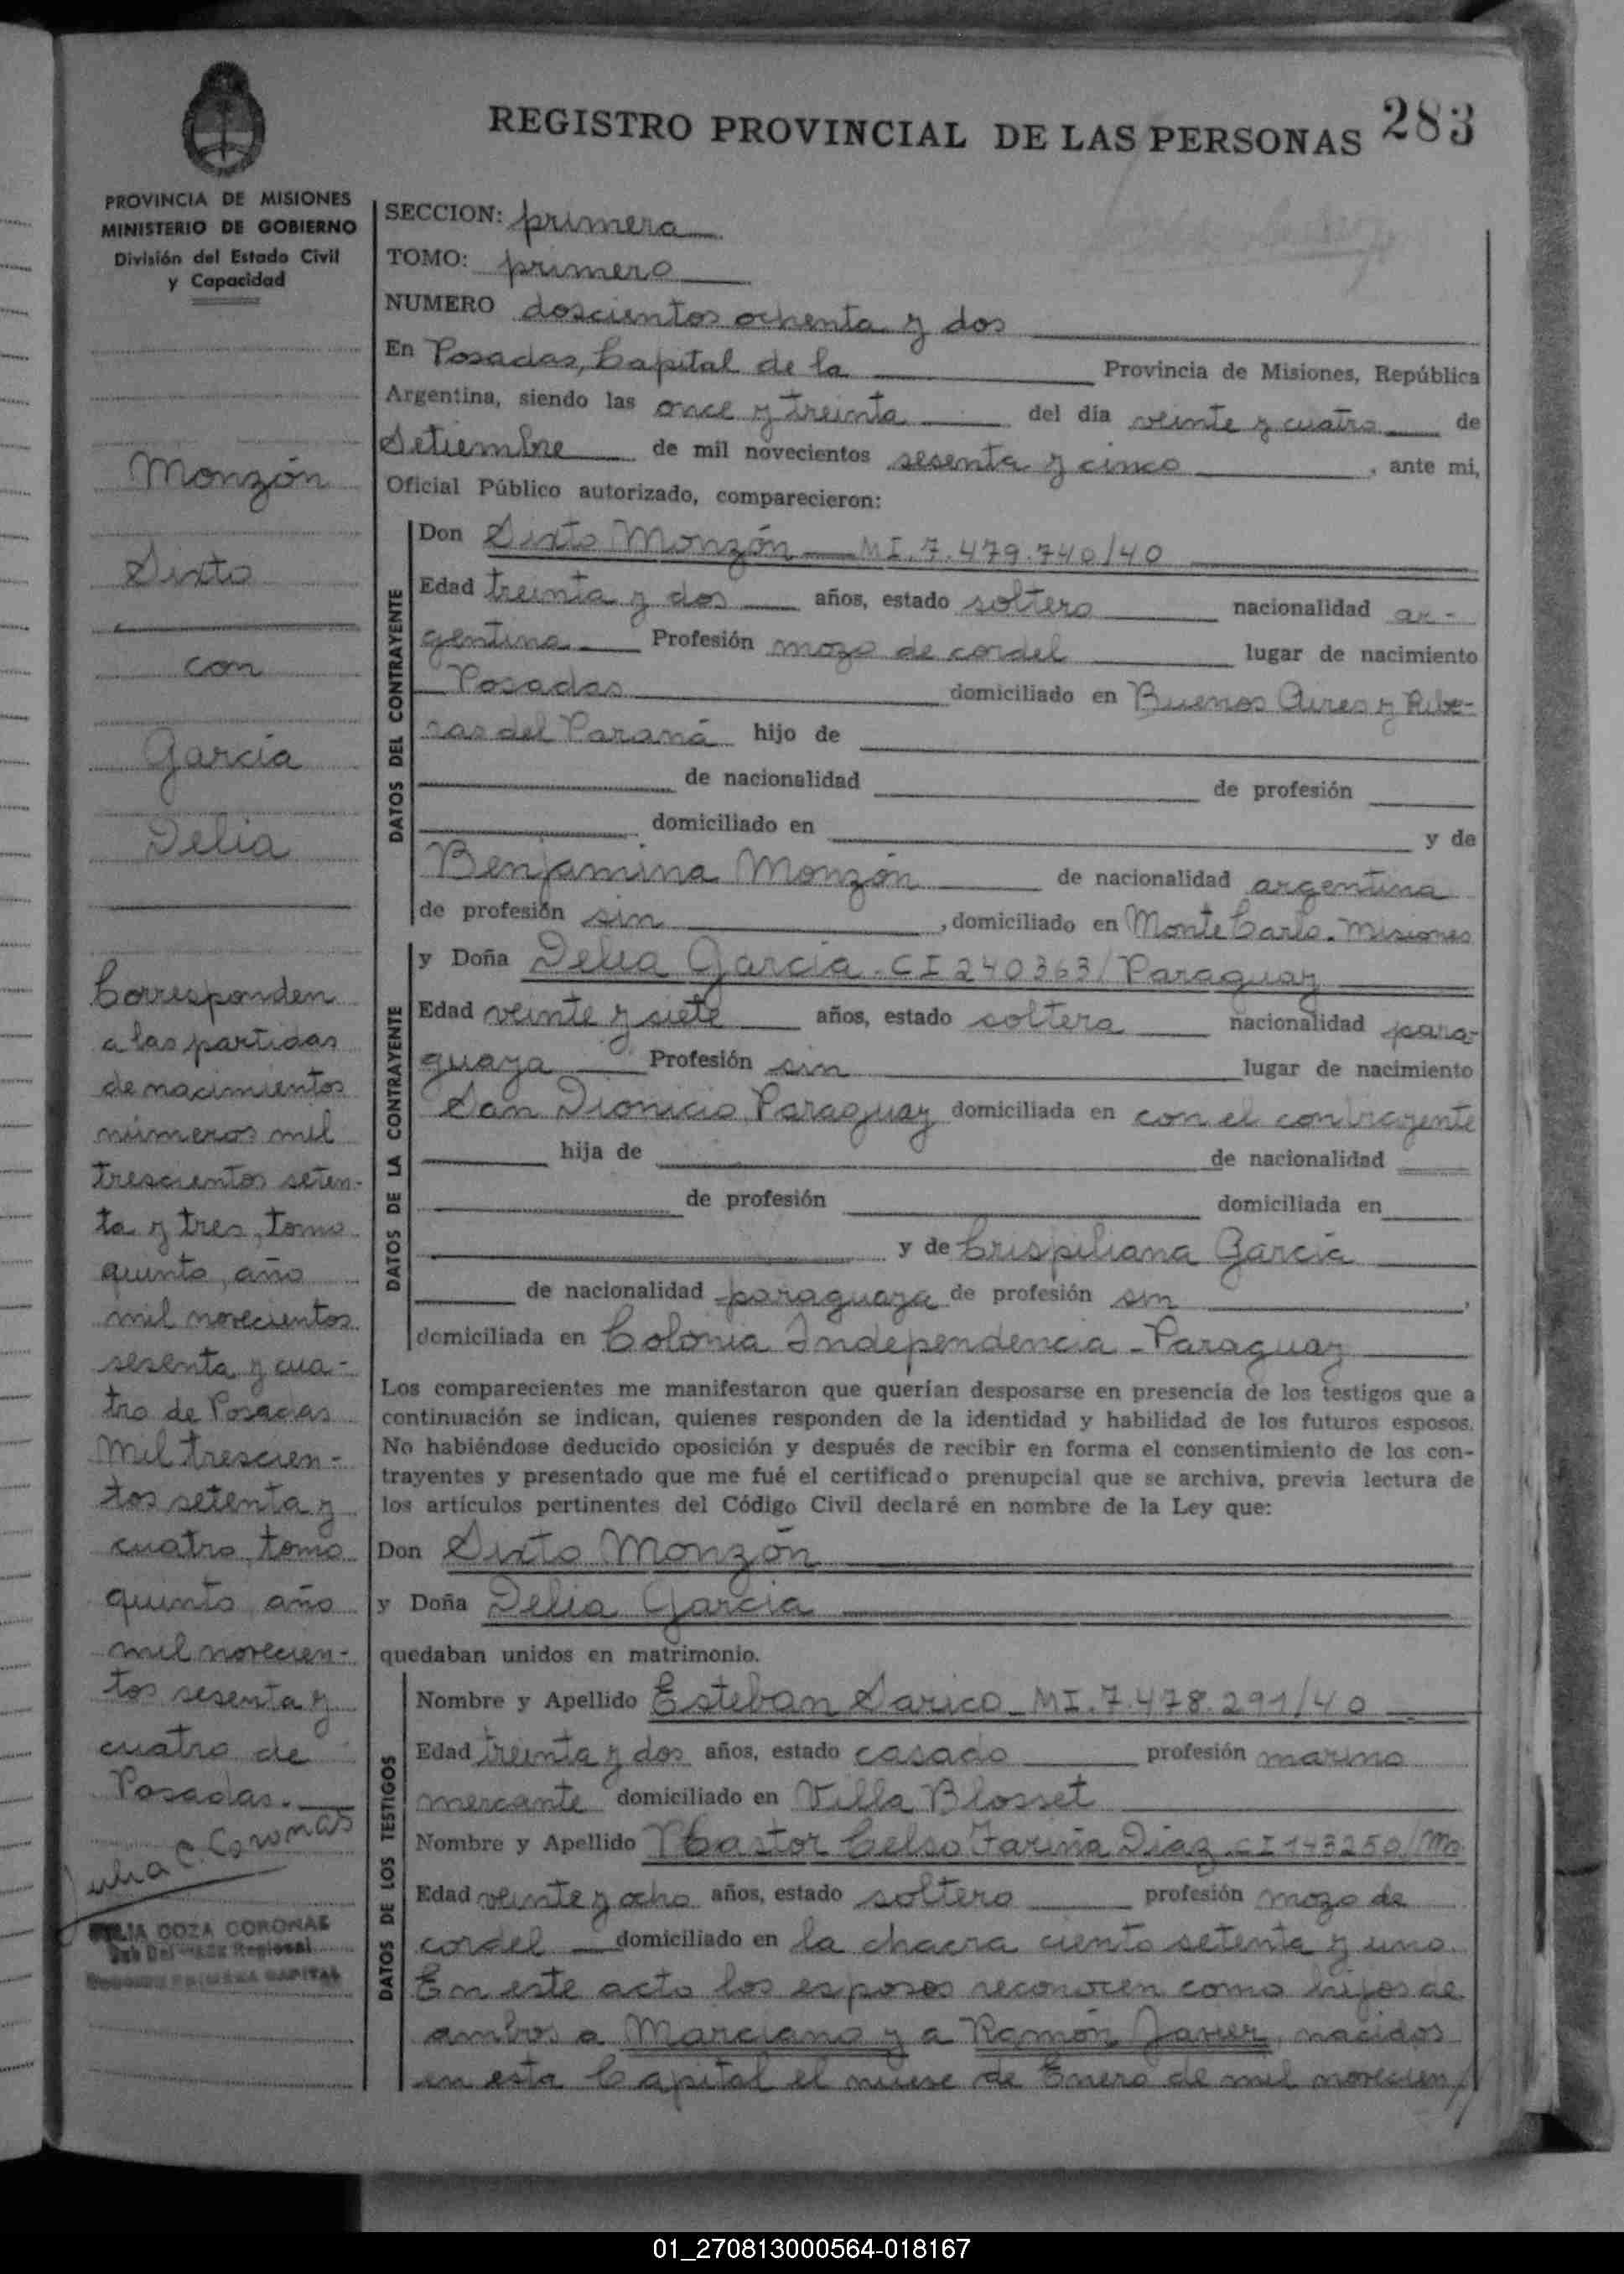 REGISTRO PROVINCIAL DE LAS PERSONAS 283
PROVINCIA DE MISIONES
MINISTERIO DE GOBIERNO
División del Estado Civil
y Capacidad
Monzón
Sixto
con
García
Delia
Corresponden
a las partidas
de nacimientos
números mil
trescientos seten-
ta y tres, tomo
quinto, año
mil novecientos
sesenta y cua-
tro de Posadas
Mil trescien-
tos setenta y
cuatro, tomo
quinto, año
mil novecien-
tos sesenta y
cuatro de
Posadas.
Julia C. Coronas
JULIA COZA CORONAS
SECCION: primera
TOMO: primero
NUMERO doscientos ochenta y dos
En Posadas, Capital de la Provincia de Misiones, República
Argentina, siendo las once y treinta del día veinte y cuatro de
Setiembre de mil novecientos sesenta y cinco, ante mi,
Oficial Público autorizado, comparecieron:
DATOS DEL CONTRAYENTE
Don Sixto Monzón MI.7.479.740/40
Edad treinta y dos años, estado soltero nacionalidad ar-
gentina Profesión mozo de cordel lugar de nacimiento
Posadas domiciliado en Buenos Aires y Ribe-
ras del Paraná hijo de
de nacionalidad de profesión
domiciliado en y de
Benjamina Monzón de nacionalidad argentina
de profesión sin, domiciliado en Monte Carlo. Misiones
DATOS DE LA CONTRAYENTE
y Doña Delia García. CI 240363/ Paraguay
Edad veinte y siete años, estado soltera nacionalidad para-
guaya Profesión sin lugar de nacimiento
San Dionicio, Paraguay domiciliada en con el contrayente
hija de de nacionalidad
de profesión domiciliada en
y de Crispiliana García
de nacionalidad paraguaya de profesión sin,
domiciliada en Colonia Independencia - Paraguay
Los comparecientes me manifestaron que querían desposarse en presencia de los testigos que a
continuación se indican, quienes responden de la identidad y habilidad de los futuros esposos.
No habiéndose deducido oposición y después de recibir en forma el consentimiento de los con-
trayentes y presentado que me fué el certificado prenupcial que se archiva, previa lectura de
los artículos pertinentes del Código Civil declaré en nombre de la Ley que:
Don Sixto Monzón
y Doña Delia García
quedaban unidos en matrimonio.
DATOS DE LOS TESTIGOS
Nombre y Apellido Esteban Sarico MI.7.478.291/40
Edad treinta y dos años, estado casado profesión marino
mercante domiciliado en Villa Blosset
Nombre y Apellido Castor Celso Fariña Diaz CI 143250/Mn
Edad veinte y ocho años, estado soltero profesión mozo de
cordel domiciliado en la chacra ciento setenta y uno.
En este acto los esposos reconocen como hijos de
ambos a Marciano y a Ramón Javier, nacidos
en esta Capital el nueve de Enero de mil novecien//
01_270813000564-018167